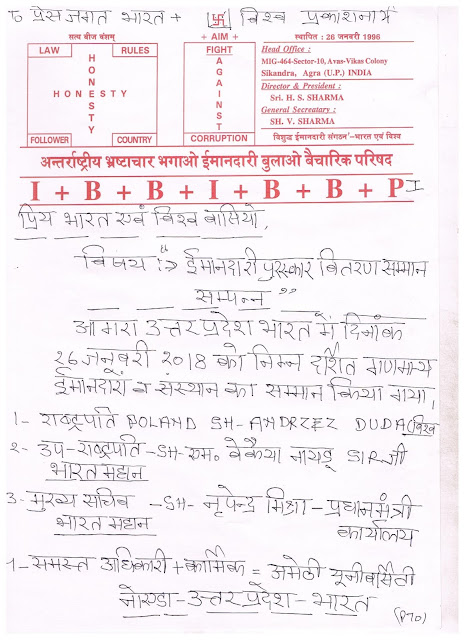 To प्रेस जगत भारत + 卐 विश्व प्रकाशनार्थ
सत्य बीज बंशम्
LAW RULES
HONESTY
HONESTY
FOLLOWER COUNTRY
+ AIM +
FIGHT
AGAINST
CORRUPTION
स्थापित : 26 जनवरी 1996
Head Office :
MIG-464-Sector-10, Avas-Vikas Colony
Sikandra, Agra (U.P.) INDIA
Director & President :
Sri. H. S. SHARMA
General Secreatary :
SH. V. SHARMA
विशुद्ध ईमानदारी संगठन'-भारत एवं विश्व
अन्तर्राष्ट्रीय भ्रष्टाचार भगाओ ईमानदारी बुलाओ बैचारिक परिषद
I + B + B + I + B + B + P I
प्रिय भारत एवं विश्व वासियो,
विषय :> "ईमानदारी पुरस्कार बितरण सम्मान
सम्पन्न"
आगरा उत्तर प्रदेश भारत में दिनांक
26 जनवरी 2018 को निम्न दर्शित गणमान्य
ईमानदारों व संस्थान का सम्मान किया गया,
1- राष्ट्रपति POLAND SH-ANDRZEZ DUDA विश्व
2- उप-राष्ट्रपति-SH-एम० वेंकैया नायडू SIR जी
भारत महान
3- मुख्य सचिव -SH- नृपेन्द्र मिश्रा-प्रधानमंत्री
भारत महान कार्यालय
4-समस्त अधिकारी+कार्मिक = अमेठी यूनीवर्सिटी
नोएडा-उत्तर प्रदेश-भारत
(PTO)